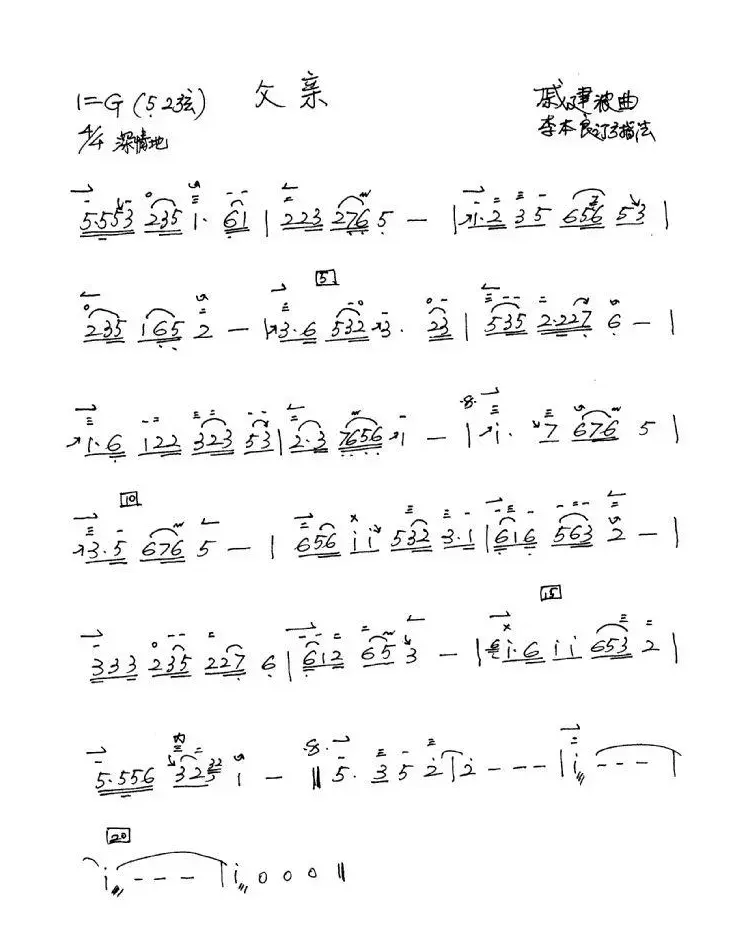 父亲
1=G (5 2 3弦)
戚建波曲
4/4 深情地
李本良订指法
5·553 235 1· 61 | 223 276 5 — | 1·2 35 656 53 |
5
235 165 2 — | 3·6 532 3· 23 | 535 2·227 6 — |
1·6 122 323 53 | 2·3 7656 1 — | i· 7 676 5 |
10
3·5 676 5 — | 656 ii 532 3·1 | 616 563 2 — |
15
333 235 227 6 | 612 65 3 — | i·6 ii 653 2 |
5·556 325 1 — || 5· 3 5 2 | 2 - - - | i - - - |
20
i - - - | i 0 0 0 ||